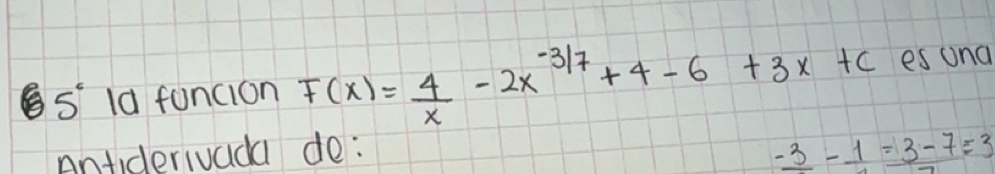 5° la funcion F(x) = 4/x - 2x^-3/7 + 4 - 6 + 3x + C es una
Antiderivada de:
-3 - 1 = 3 - 7 = 3